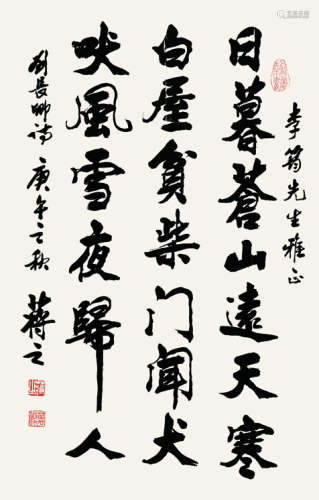 李筠先生雅正
日暮蒼山遠天寒
白屋貧柴门闻犬
吠風雪夜歸人
劉長卿诗 庚午之秋